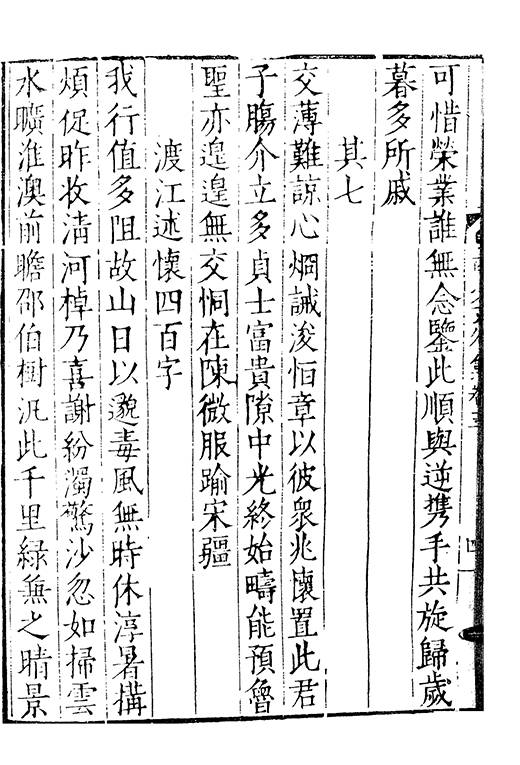 可惜榮業誰無念鑒此順與逆携手共旋歸歲
暮多所戚
其七
交薄難諒心烱誡浚恒章以彼衆兆懷置此君
子腸介立多貞士富貴隙中光終始疇能預魯
聖亦遑遑無交恫在陳微服踰宋疆
渡江述懷四百字
我行值多阻故山日以邈毒風無時休淳暑搆
煩促昨收淸河棹乃喜謝紛濁驚沙忽如掃雲
水曠淮澳前瞻邵伯樹汎此千里緑無之晴景